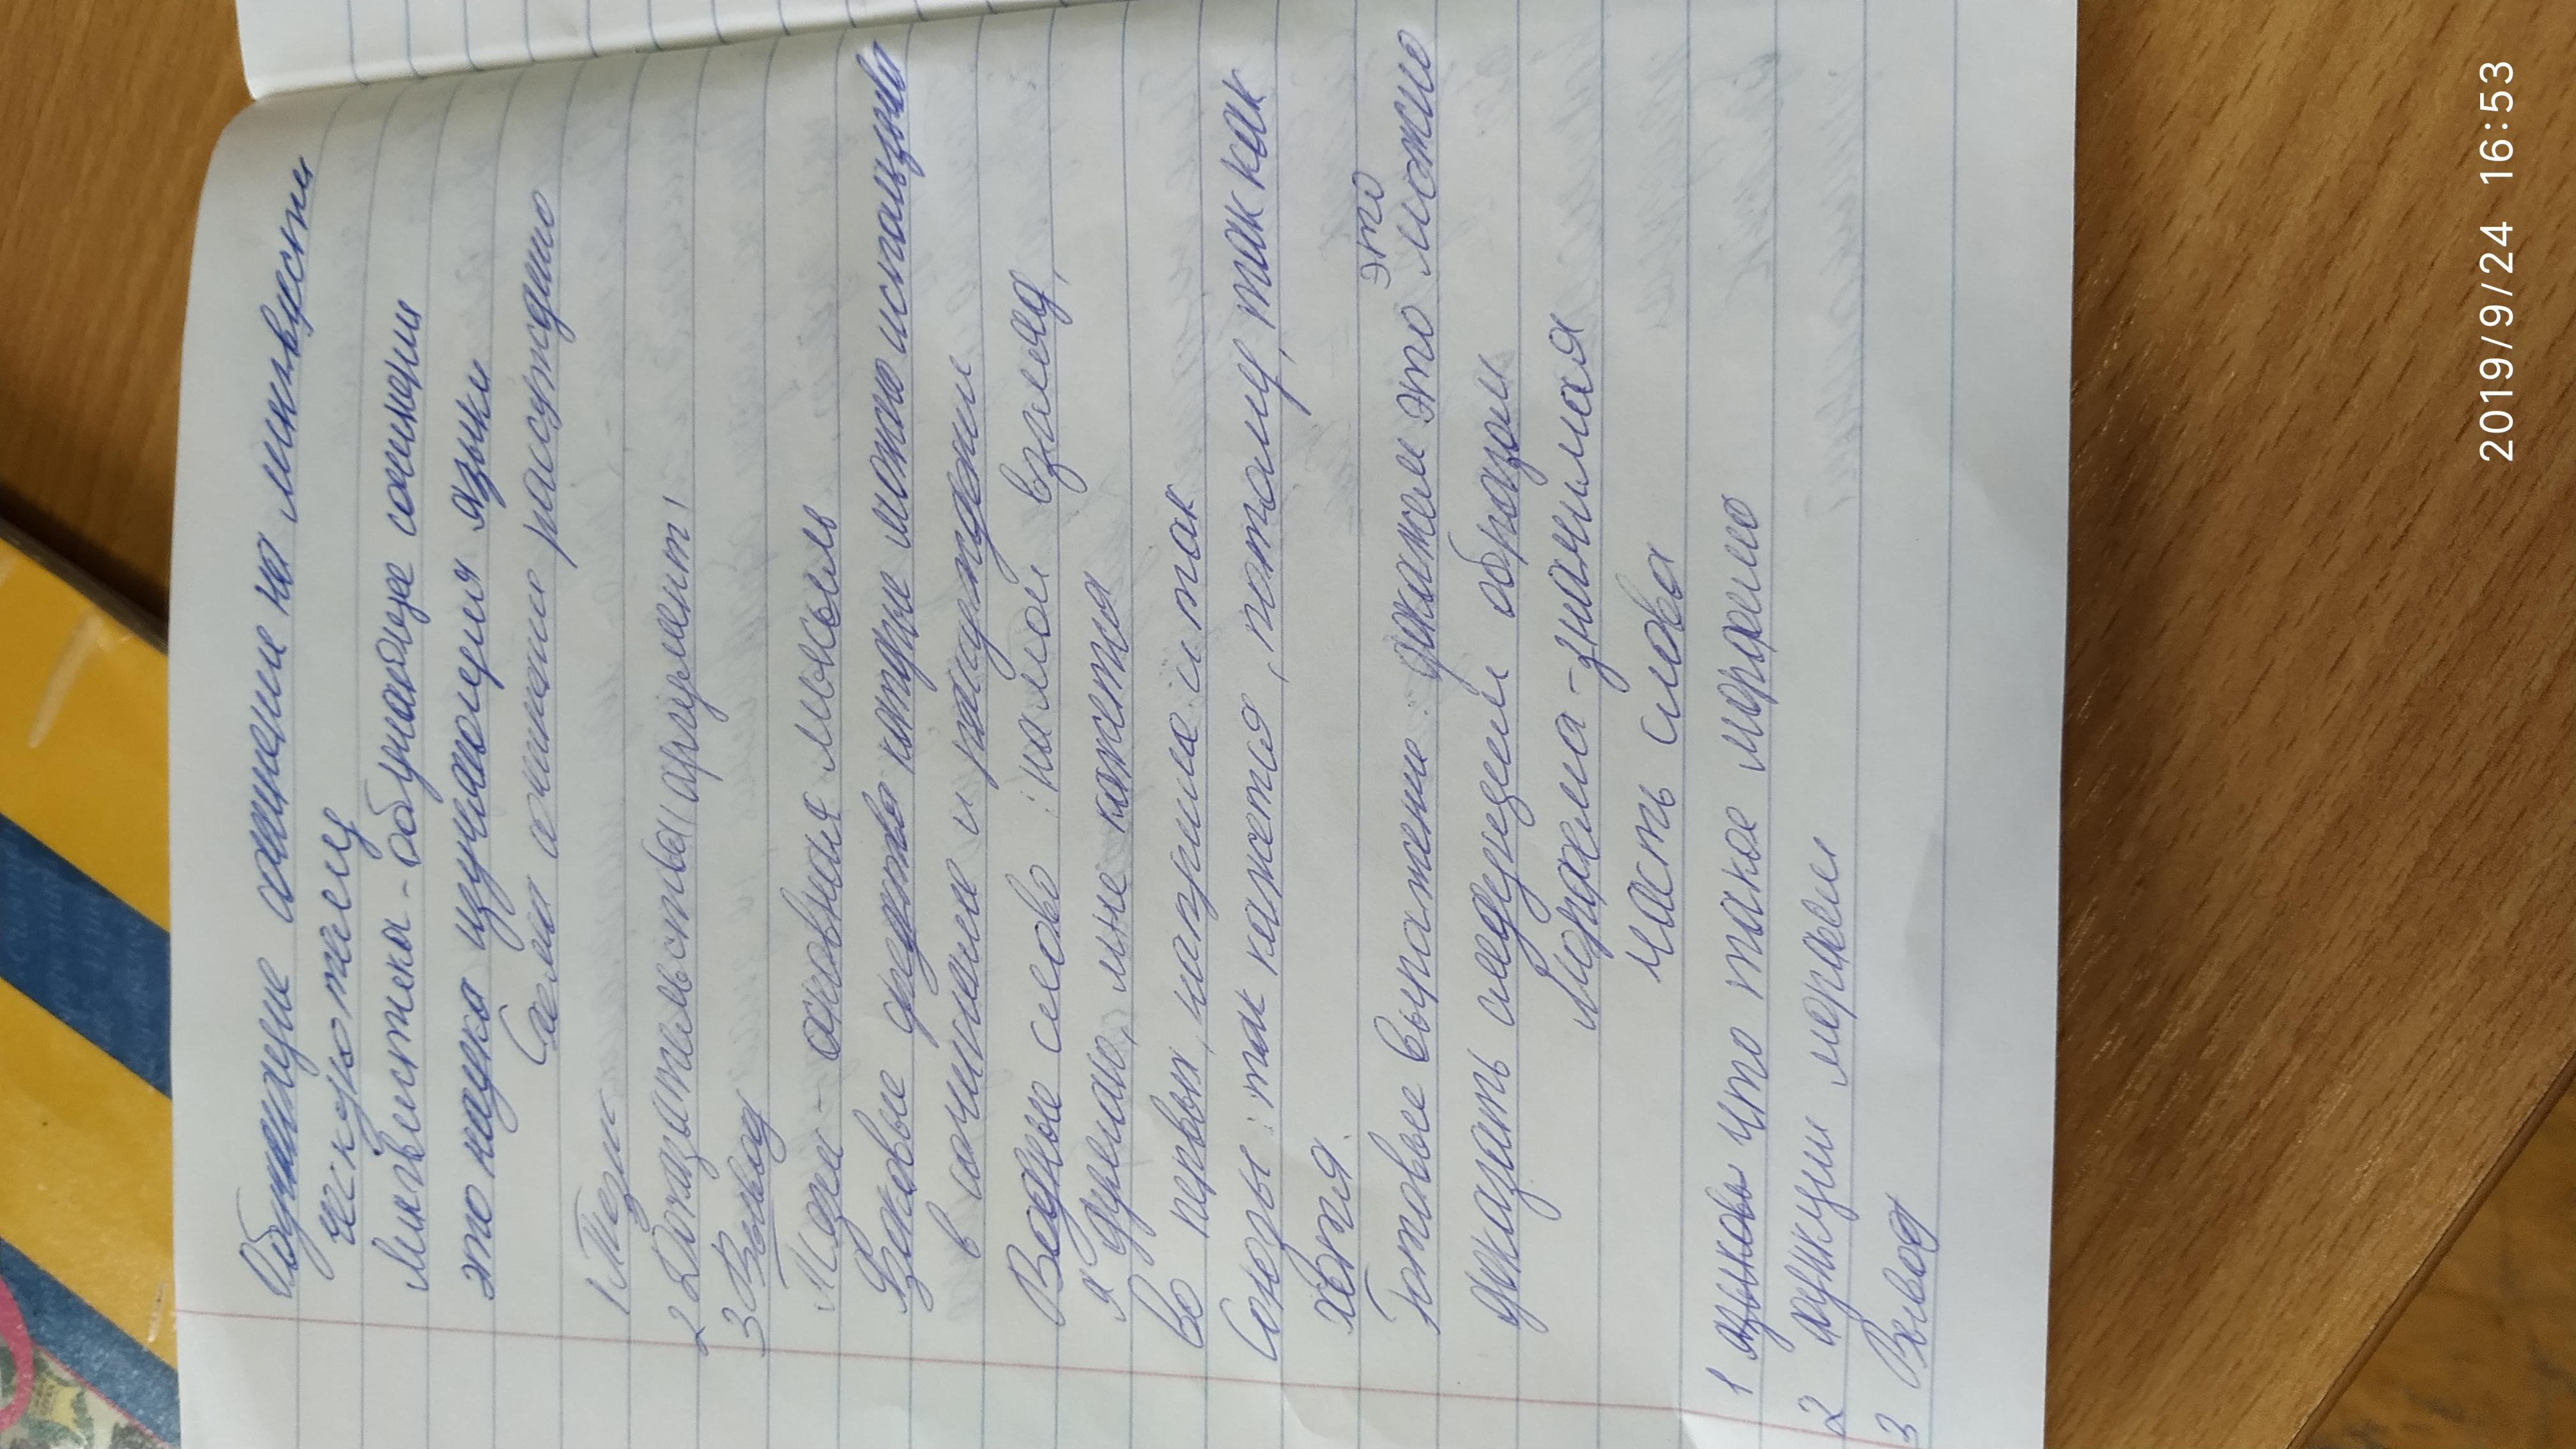 Обучающие сочинени на лингвисти
ческую тему
Лингвистика - обучающее сочинени
это наука изучающая языки
Схема сочинени рассуждино
1 Тезис
2 Доказательства\\аргумент\
3 Вывод
Тезис - основная мысль
Языковые средства которые можно использыва
в сочинение и рассуждени
Водные слова : на мой взгляд,
я думаю, мне кажется
во первых, например и так
Союзы : так кажется, потому, так как
хотя.
это
Готовые выражение : докажем это можно
доказать следующем образом
Морфема - значимая
часть слова
1 языковы что такое морфемо
2 функции морфем
3 Вывод
2019/9/24 16:53